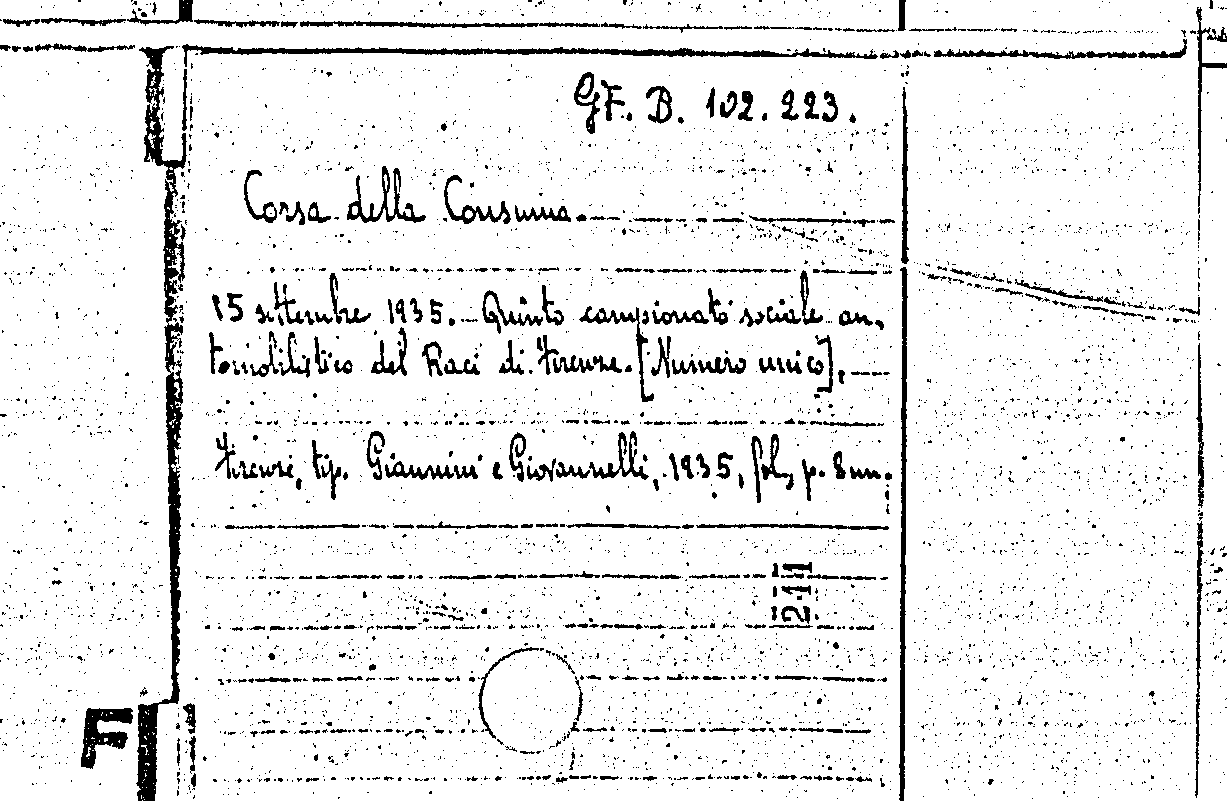 GF. B. 102. 223.
Corsa della Consuma.
15 settembre 1935. Quinto campionato sociale au-
tomobilistico del Raci di Firenze. [Numero unico].
Firenze, tip. Giannini e Giovannelli, 1935, fol., p. 8 nn.
211
F